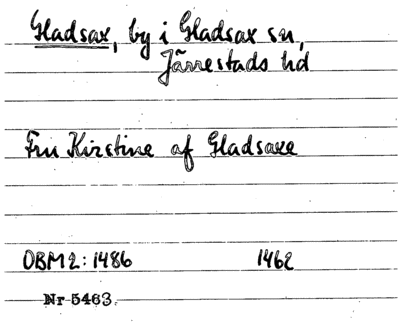 Gladsax, by i Gladsax sn,
Järrestads hd
Fru Kirstine af Gladsaxe
ÖBM 2: 1486 1462
Nr 5463.